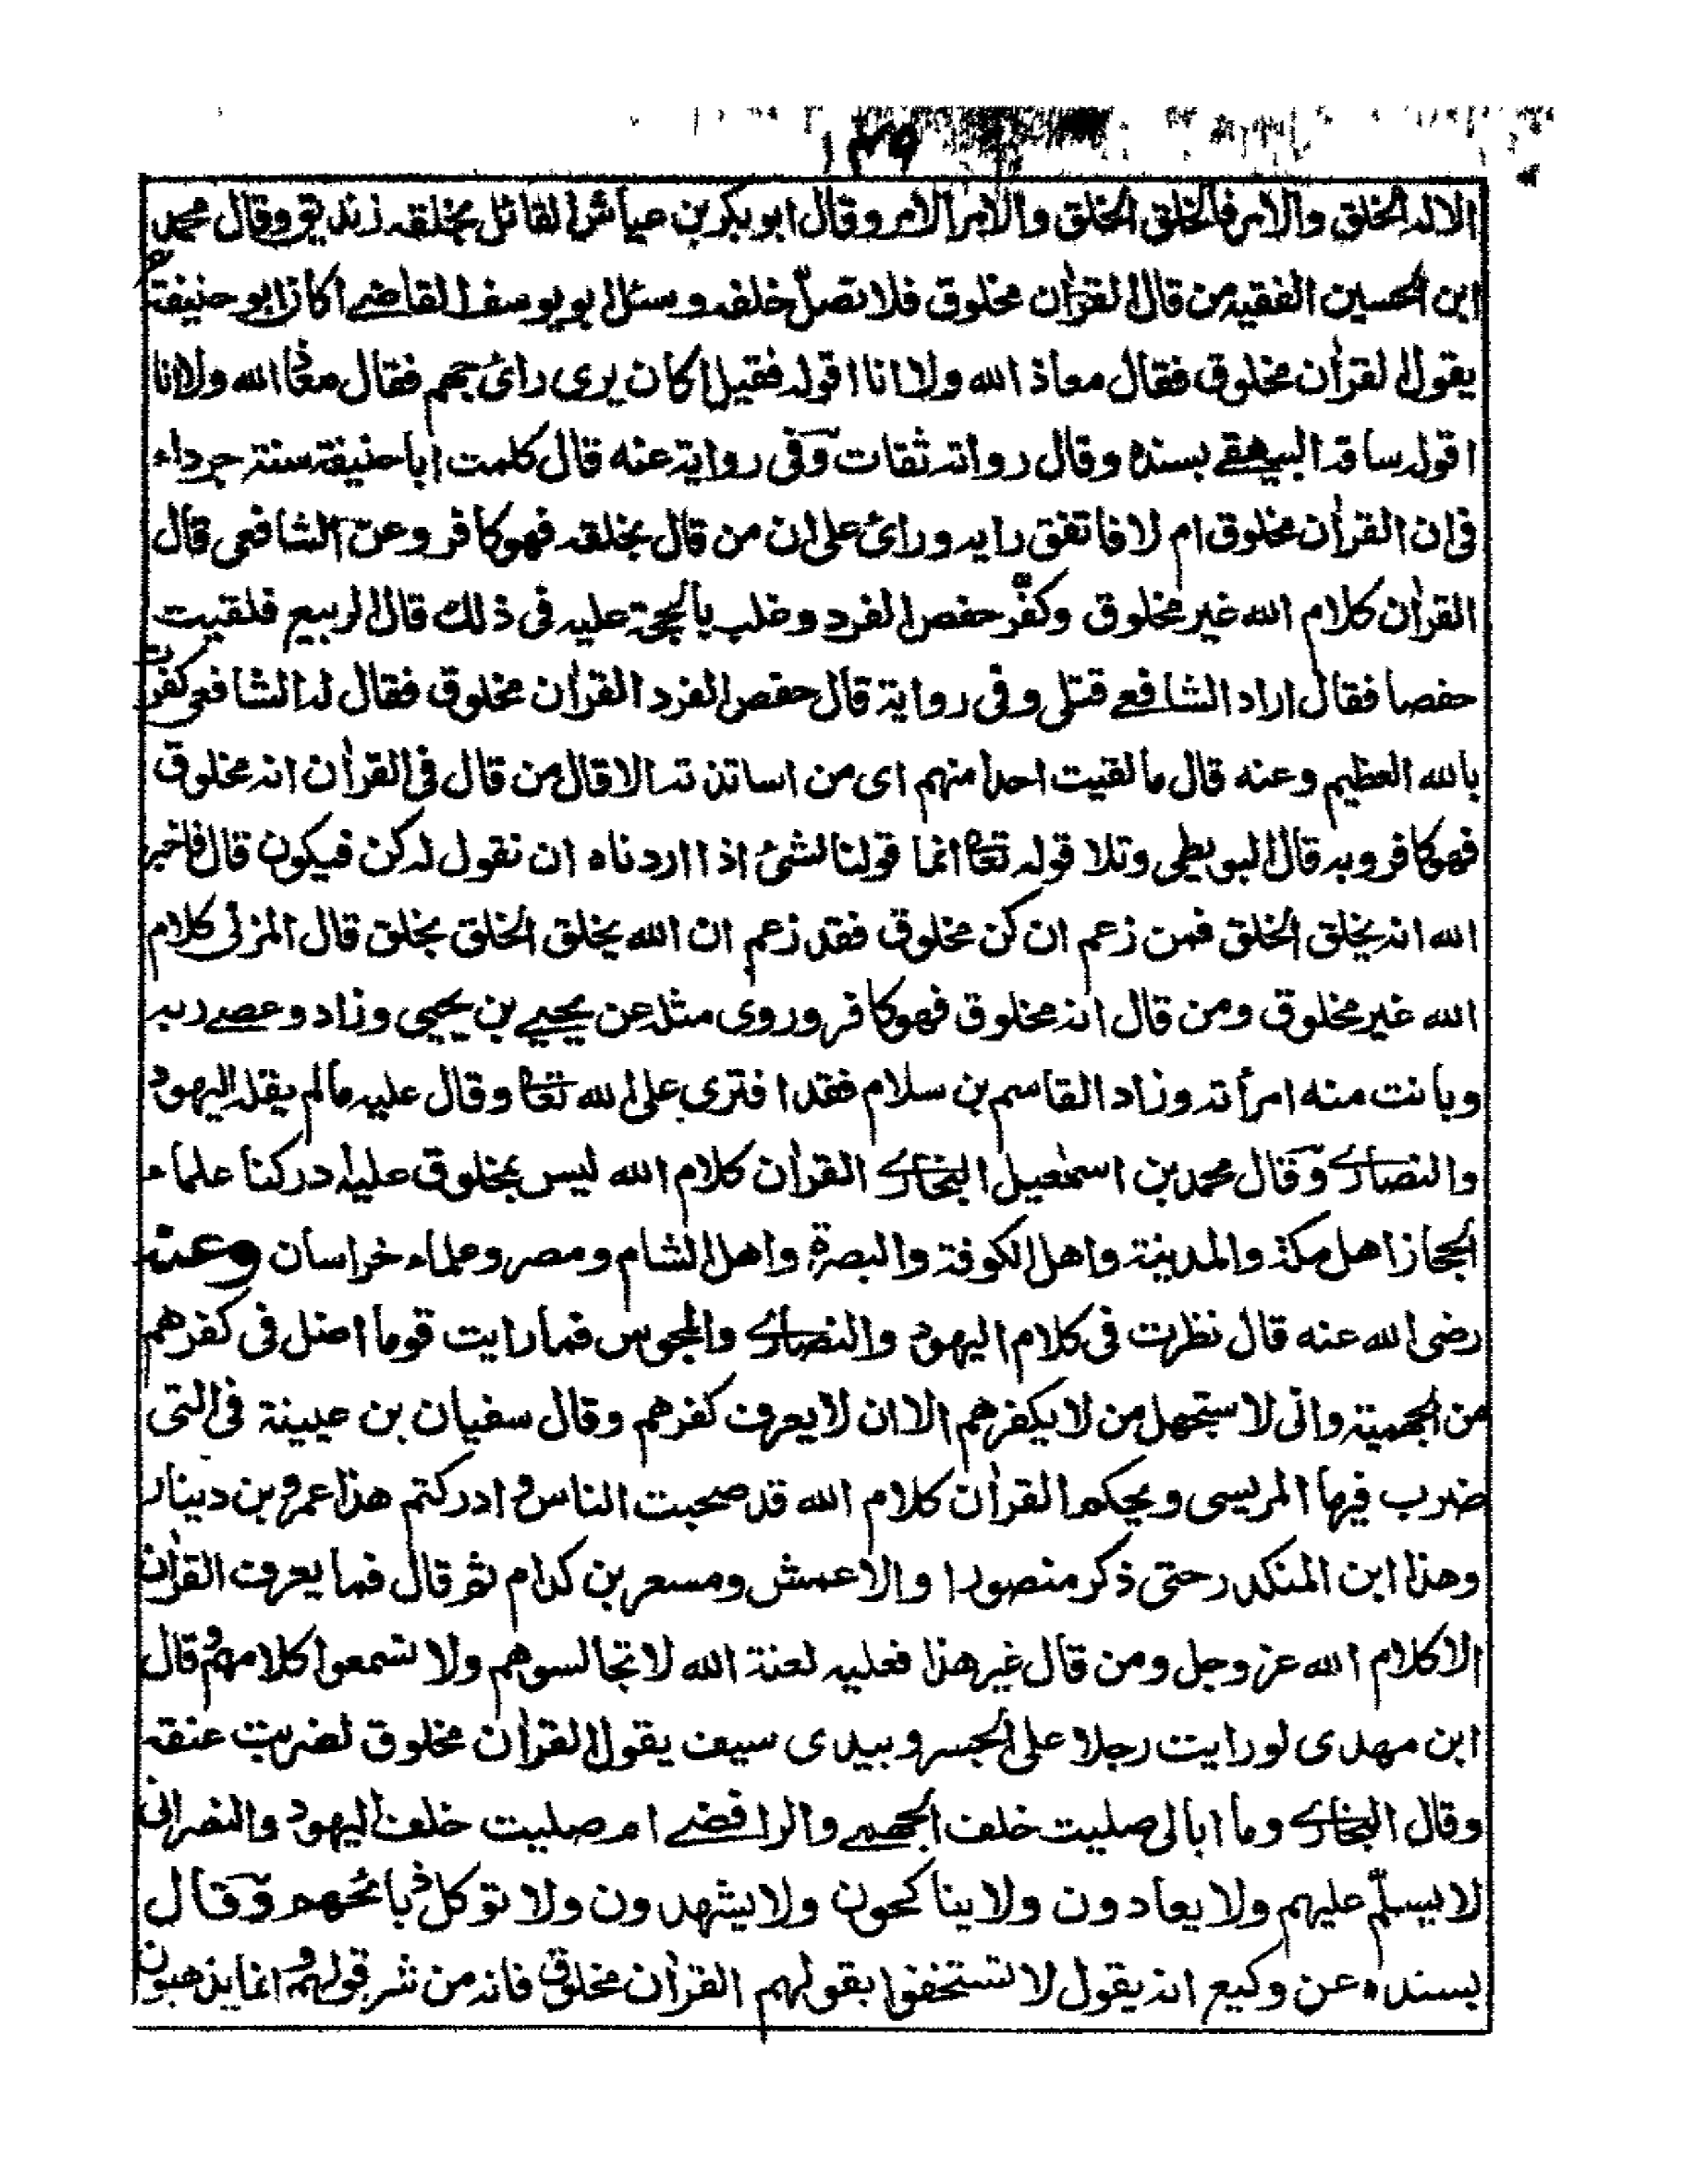 ١٣٩
الا له الخلق والامر فالخلق الخلق والامر الامر وقال ابو بكر بن عياش القائل بخلقه زنديق وقال محمد
ابن الحسين الفقيه من قال القرآن مخلوق فلا تصلّ خلفه وسئل ابو يوسف القاضي اكان ابو حنيفة
يقول القرآن مخلوق فقال معاذ الله ولا انا اقوله فقيل اكان يرى رائ جهم فقال معاذ الله ولا انا
اقوله ساقه البيهقي بسنده وقال رواته ثقات وفى رواية عنه قال كلمت ابا حنيفة سنة جرداء
فى ان القرآن مخلوق ام لا فاتفق رايه ورائ على ان من قال بخلقه فهو كافر وعن الشافعى قال
القرآن كلام الله غير مخلوق وكفّر حفص الفرد وغلب بالحجة عليه فى ذلك قال الربيع فلقيت
حفصا فقال اراد الشافعي قتلى وفى رواية قال حفص الفرد القرآن مخلوق فقال له الشافعى كفرت
بالله العظيم وعنه قال ما لقيت احدا منهم اى من اساتذته الا قال من قال فى القرآن انه مخلوق
فهو كافر وبه قال البويطى وتلا قوله تعا انما قولنا لشئ اذا اردناه ان نقول له كن فيكون قال فاخبر
الله انه يخلق الخلق فمن زعم ان كن مخلوق فقد زعم ان الله يخلق الخلق بخلق قال المزنى كلام
الله غير مخلوق ومن قال انه مخلوق فهو كافر وروى مثله عن يحيي بن يحيى وزاد وعصي ربه
وبانت منه امرأته وزاد القاسم بن سلام فقد افترى على الله تعا وقال عليه ما لم يقله اليهود
والنصارى وقال محمد بن اسمٰعيل البخارى القرآن كلام الله ليس بمخلوق عليه ادركنا علماء
الحجاز اهل مكة والمدينة واهل الكوفة والبصرة واهل الشام ومصر وعلماء خراسان وعنه
رضى الله عنه قال نظرت فى كلام اليهود والنصارى والمجوس فما رايت قوما اضل فى كفرهم
من الجهمية وانى لاستجهل من لا يكفرهم الا ان لا يعرف كفرهم وقال سفيان بن عيينة فى التى
ضرب فيها المريسى ويحكم القرآن كلام الله قد صحبت الناس وادركتهم هذا عمرو بن دينار
وهذا ابن المنكدر حتى ذكر منصورا والاعمش ومسعر بن كدام ثم قال فما يعرف القرآن
الا كلام الله عز وجل ومن قال غير هذا فعليه لعنة الله لا تجالسوهم ولا تسمعوا كلامهم وقال
ابن مهدى لو رايت رجلا على الجسر وبيدى سيف يقول القرآن مخلوق لضربت عنقه
وقال البخارى وما ابالى صليت خلف الجهمي والرافضي ام صليت خلف اليهود والنصرانى
لا يسلّم عليهم ولا يعادون ولا يناكحون ولا يشهدون ولا توكل ذبائحهم وقال
بسنده عن وكيع انه يقول لا تستخفوا بقولهم القرآن مخلوق فانه من شر قولهم وانما يذهبون